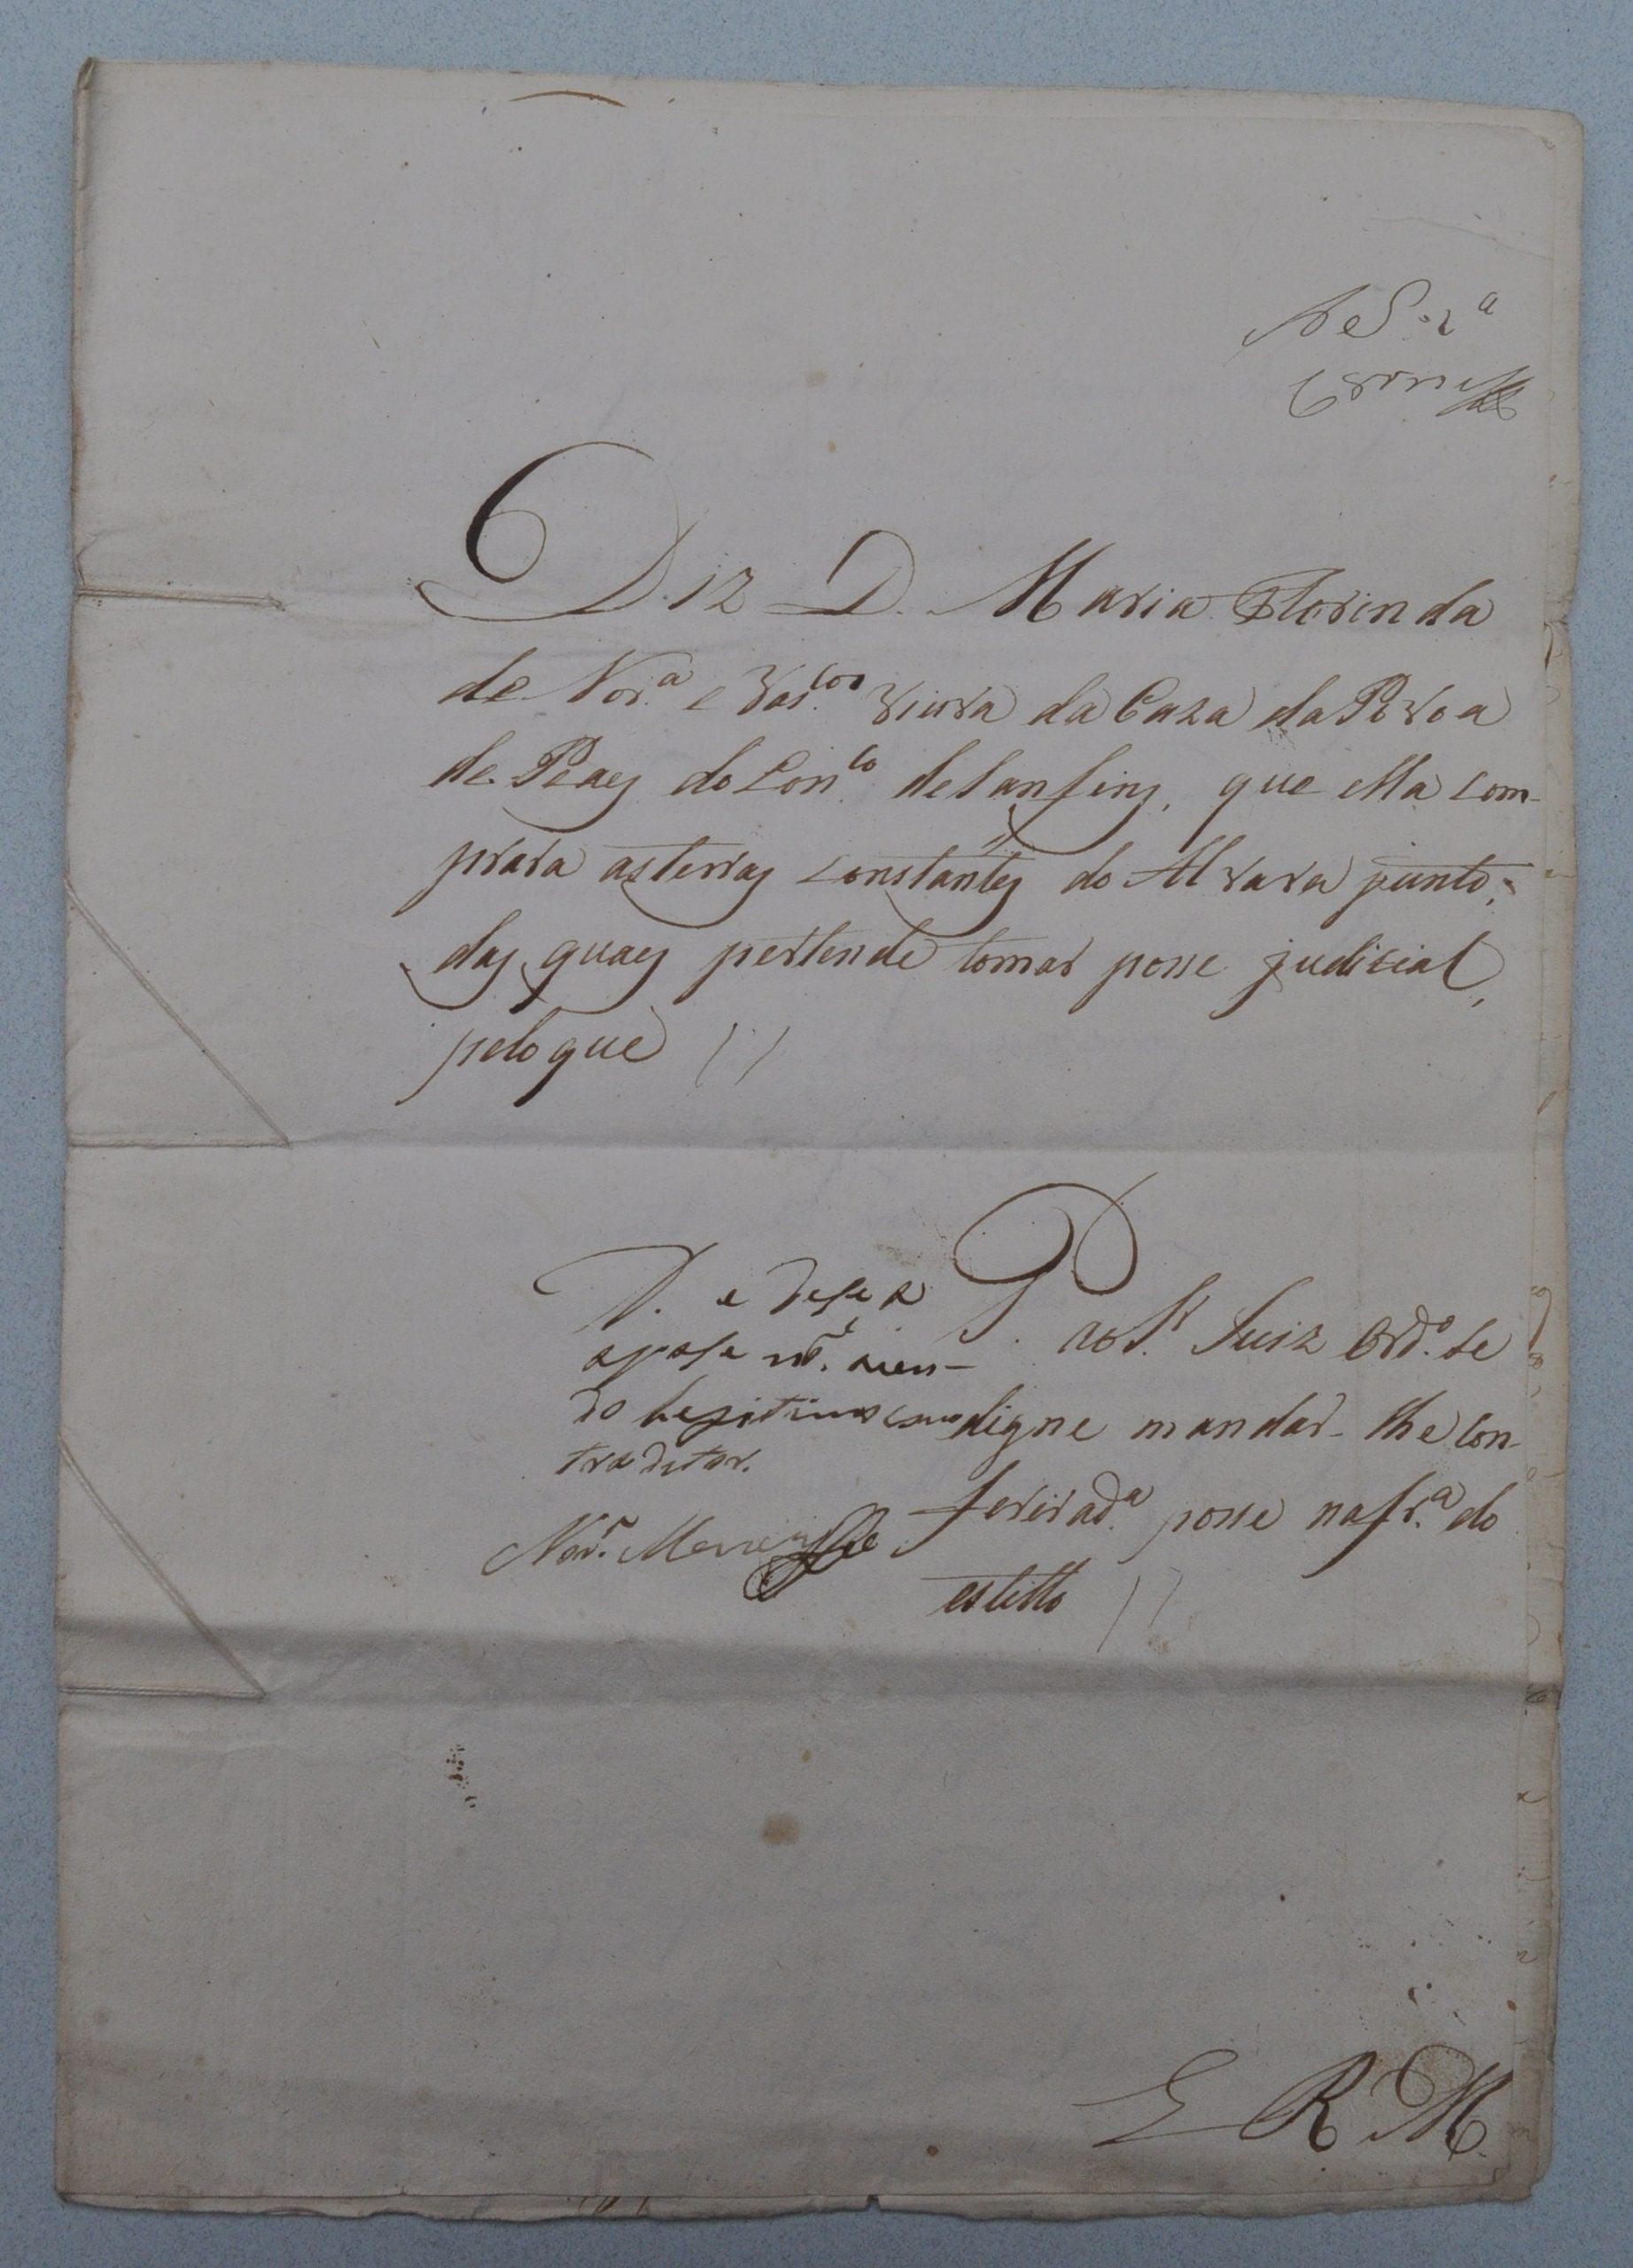 Diz D. Maria Florinda
de Nor.ª e Vas.cos viuva da Caza da Povoa
de Peaes do Con.co de Sanfins, que ella com-
prara as terras constantes do Alvara junto,
das quaes pertende tomar posse judicial,
pelo que //
P. ao S.r Juiz Ord.º se
digne mandar-lhe con-
ferir a d.ª posse na fr.ª do
estillo //
D. e dese a
a pose n.
do Legitimo con
traditor.
E R M.